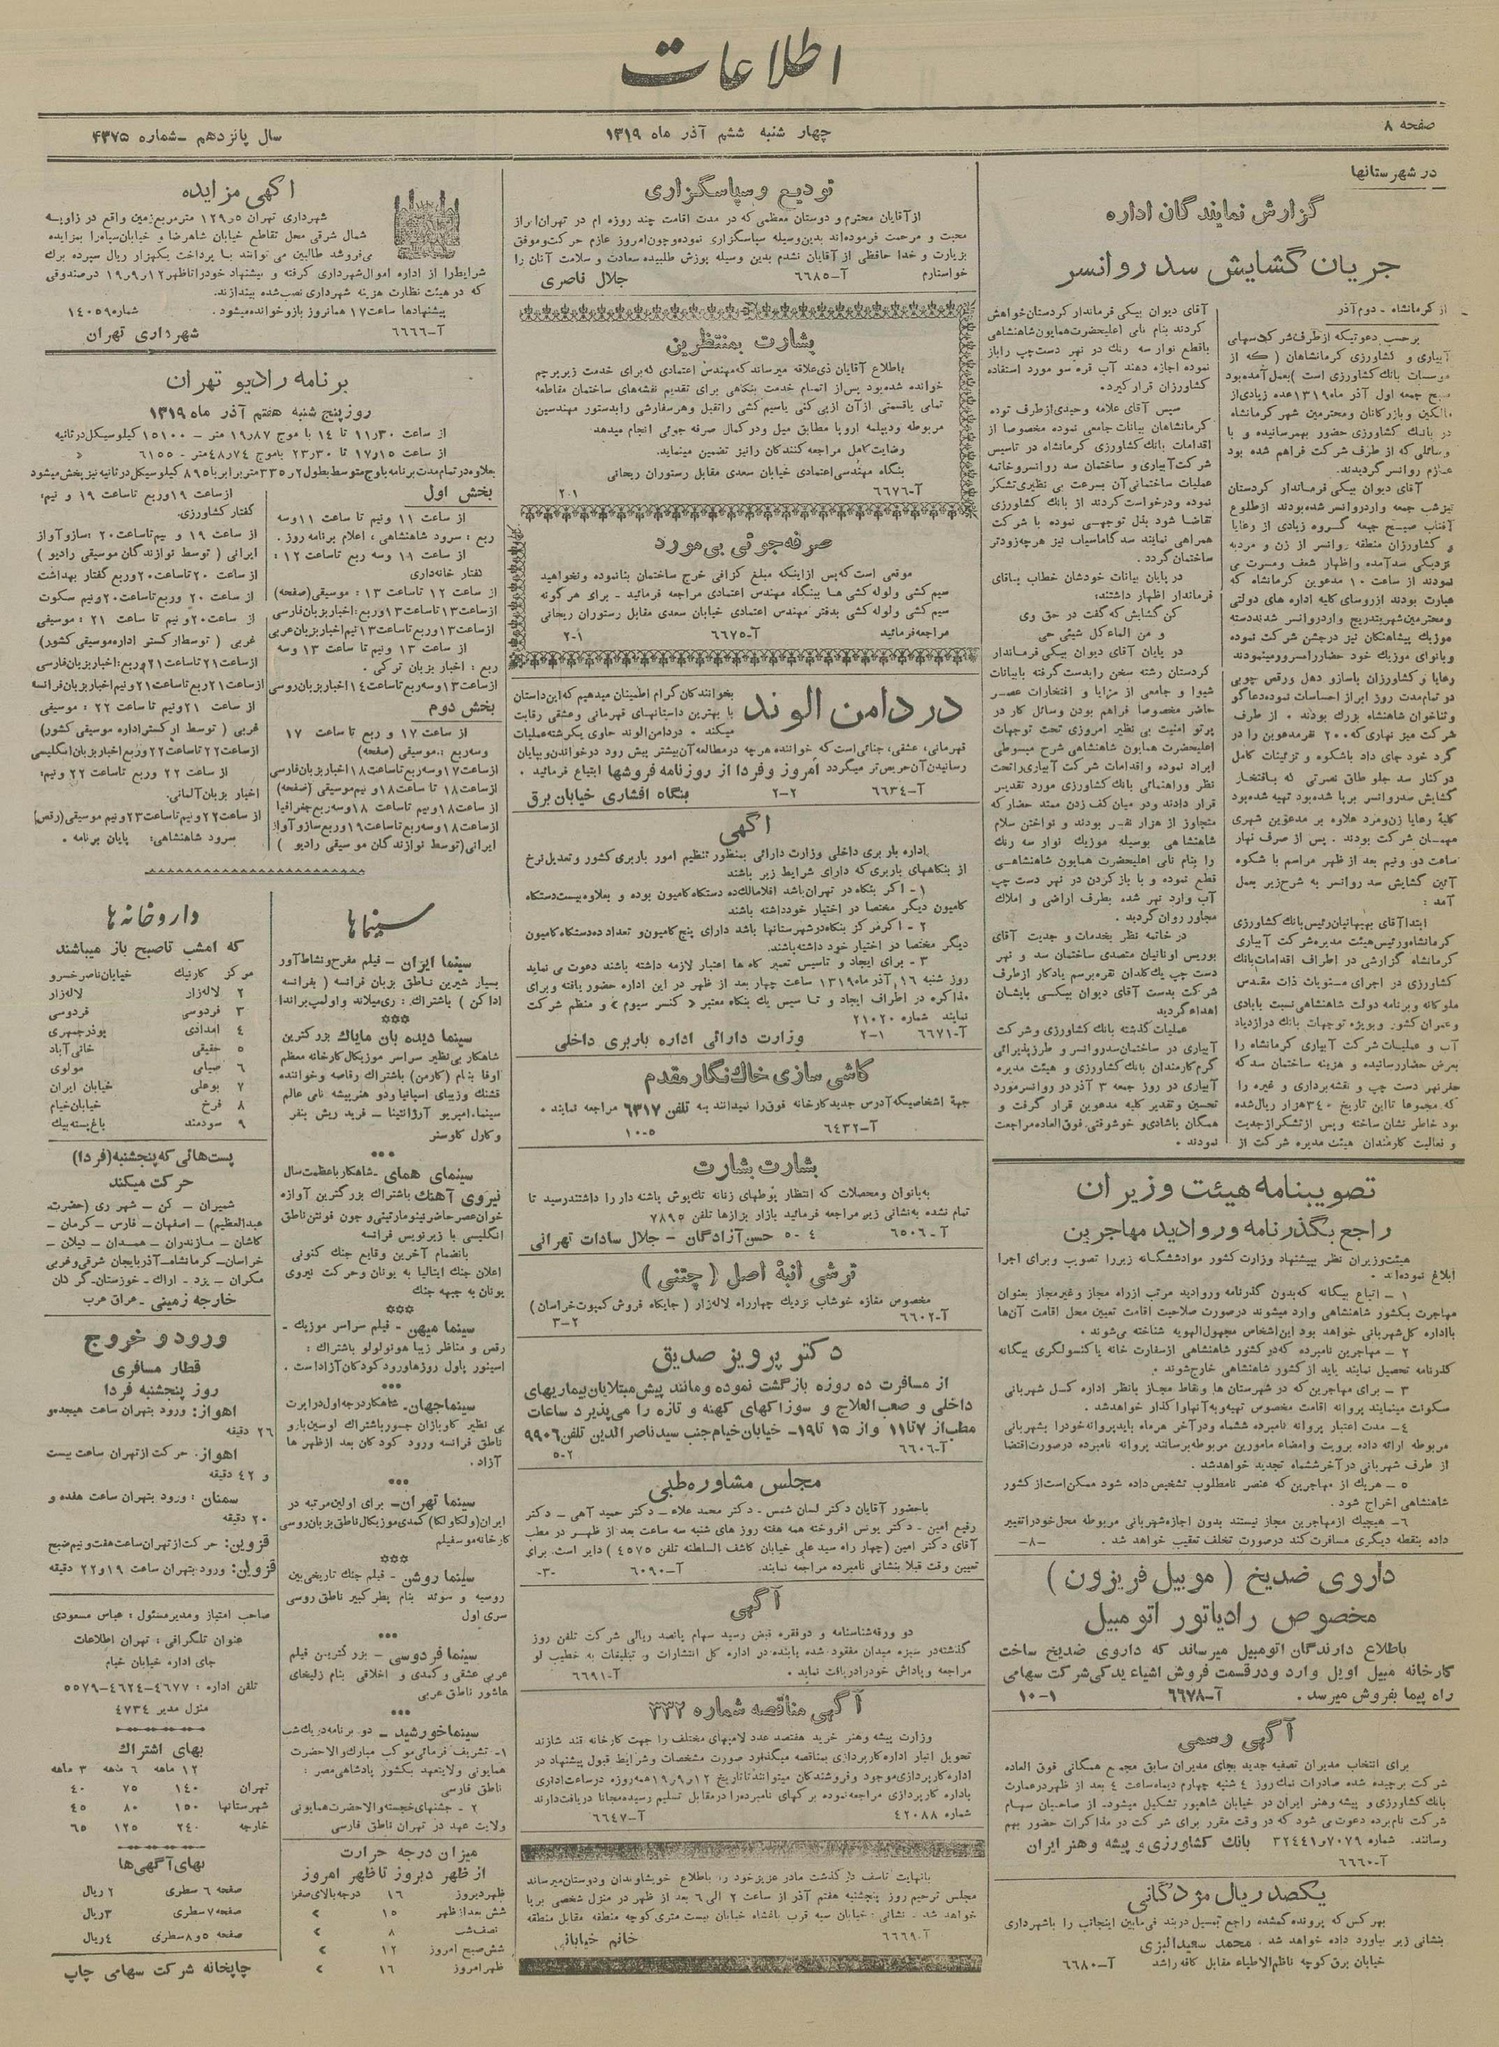 اطلاعات
صفحه ۸
چهار شنبه ششم آذر ماه ۱۳۱۹
سال پانزدهم - شماره ۴۳۷۵
در شهرستانها
گزارش نمایندگان اداره
جریان گشایش سد روانسر
از کرمانشاه - دوم آذر
برحسب دعوتیکه از طرف شرکت سهامی
آبیاری و کشاورزی کرمانشاهان (که از
موسسات بانک کشاورزی است) بعمل آمده بود
صبح جمعه اول آذر ماه ۱۳۱۹ عده زیادی از
مالکین و بازرگانان و محترمین شهر کرمانشاه
در بانک کشاورزی حضور بهمرسانیده و با
وسائلی که از طرف شرکت فراهم شده بود
عازم روانسر گردیدند.
آقای دیوان بیگی فرماندار کردستان
نیز شب جمعه وارد روانسر شده بودند از طلوع
آفتاب صبح جمعه گروه زیادی از رعایا
و کشاورزان منطقه روانسر از زن و مرد به
نزدیکی سد آمده و اظهار شعف و مسرت می
نمودند از ساعت ۱۰ مدعوین کرمانشاه که
عبارت بودند از روسای کلیه اداره های دولتی
و محترمین شهر بتدریج وارد روانسر شدند دسته
موزیک پیشاهنگان نیز در جشن شرکت نموده
و بانوای موزیک خود حضار را مسرور مینمودند
رعایا و کشاورزان با ساز و دهل و رقص چوبی
در تمام مدت روز ابراز احساسات نموده دعاگو
و ثناخوان شاهنشاه بزرگ بودند . از طرف
شرکت میز نهاری که ۲۰۰ نفر مدعوین را در
گرد خود جای داد باشکوه و تزئینات کامل
در کنار سد جلو طاق نصرتی که بافتخار
گشایش سد روانسر برپا شده بود تهیه شده بود
کلیهٔ رعایا زن و مرد علاوه بر مدعوین شهری
مهمان شرکت بودند . پس از صرف نهار
ساعت دو و نیم بعد از ظهر مراسم با شکوه
آئین گشایش سد روانسر به شرح زیر بعمل
آمد :
ابتدا آقای بهبهانیان رئیس بانک کشاورزی
کرمانشاه و رئیس هیئت مدیره شرکت آبیاری
کرمانشاه گزارشی در اطراف اقدامات بانک
کشاورزی در اجرای منویات ذات مقدس
ملوکانه و برنامه دولت شاهنشاهی نسبت بآبادی
و عمران کشور و بویژه توجهات بانک در ازدیاد
آب و عملیات شرکت آبیاری کرمانشاه را
بعرض حضار رسانیده و هزینه ساختمان سد که
حفر نهر دست چپ و نقشه برداری و غیره را
که مجموعا تا این تاریخ ۳۴۰ هزار ریال شده
بود خاطر نشان ساخته و پس از تشکر از جدیت
و فعالیت کارمندان هیئت مدیره شرکت از
آقای دیوان بیگی فرماندار کردستان خواهش
کردند بنام نامی اعلیحضرت همایون شاهنشاهی
با قطع نوار سه رنگ در نهر دست چپ را باز
نموده اجازه دهند آب قره سو مورد استفاده
کشاورزان قرار گیرد.
سپس آقای علامه وحیدی از طرف توده
کرمانشاهان بیانات جامعی نموده مخصوصا از
اقدامات بانک کشاورزی کرمانشاه در تاسیس
شرکت آبیاری و ساختمان سد روانسر و خاتمه
عملیات ساختمانی آن بسرعت بی نظیری تشکر
نموده و درخواست کردند از بانک کشاورزی
تقاضا شود بذل توجهی نموده با شرکت
همراهی نمایند سد گاماسیاب نیز هرچه زودتر
ساختمان گردد .
در پایان بیانات خودشان خطاب بآقای
فرماندار اظهار داشتند:
کن گشایش که گفت در حق وی
و من الماء کل شیئی حی
در پایان آقای دیوان بیگی فرماندار
کردستان رشته سخن را بدست گرفته با بیانات
شیوا و جامعی از مزایا و افتخارات عصر
حاضر مخصوصا فراهم بودن وسائل کار در
پرتو امنیت بی نظیر امروزی تحت توجهات
اعلیحضرت همایون شاهنشاهی شرح مبسوطی
ایراد نموده و اقدامات شرکت آبیاری را تحت
نظر و راهنمائی بانک کشاورزی مورد تقدیر
قرار دادند و در میان کف زدن ممتد حضار که
متجاوز از هزار نفر بودند و نواختن سلام
شاهنشاهی بوسیله موزیک نوار سه رنگ
را بنام نامی اعلیحضرت همایون شاهنشاهی
قطع نموده و با باز کردن در نهر دست چپ
آب وارد نهر شده بطرف اراضی و املاک
مجاور روان گردید .
در خاتمه نظر بخدمات و جدیت آقای
بوریس اوتانیان متصدی ساختمان سد و نهر
دست چپ یک گلدان نقره برسم یادگار از طرف
شرکت بدست آقای دیوان بیگی بایشان
اهداء گردید
عملیات گذشته بانک کشاورزی و شرکت
آبیاری در ساختمان سد روانسر و طرز پذیرائی
گرم کارمندان بانک کشاورزی و هیئت مدیره
آبیاری در روز جمعه ۳ آذر در روانسر مورد
تحسین و تقدیر کلیه مدعوین قرار گرفت و
همگان باشادی و خوشوقتی فوق العاده مراجعت
نمودند .
تصویبنامه هیئت وزیران
راجع بگذرنامه و روادید مهاجرین
هیئت وزیران نظر بپیشنهاد وزارت کشور مواد ششگانه زیر را تصویب و برای اجرا
ابلاغ نموده اند .
۱ - اتباع بیگانه که بدون گذرنامه و روادید مرتب از راه مجاز و غیر مجاز بعنوان
مهاجرت بکشور شاهنشاهی وارد میشوند در صورت صلاحیت اقامت تعیین محل اقامت آن‌ها
با اداره کل شهربانی خواهد بود این اشخاص مجهول الهویه شناخته می‌شوند .
۲ - مهاجرین نامبرده که در کشور شاهنشاهی از سفارت خانه یا کنسولگری بیگانه
گذرنامه تحصیل نمایند باید از کشور شاهنشاهی خارج شوند .
۳ - برای مهاجرین که در شهرستان ها و نقاط مجاز با نظر اداره کل شهربانی
سکونت مینمایند پروانه اقامت مخصوص تهیه و بآنها واگذار خواهد شد .
۴ - مدت اعتبار پروانه نامبرده ششماه و در آخر هر ماه باید پروانه خود را بشهربانی
مربوطه ارائه داده برویت و امضاء مامورین مربوطه برسانند پروانه نامبرده در صورت اقتضا
از طرف شهربانی در آخر ششماه تجدید خواهد شد .
۵ - هر یک از مهاجرین که عنصر نامطلوب تشخیص داده شود ممکن است از کشور
شاهنشاهی اخراج شود .
۶ - هیچیک از مهاجرین مجاز نیستند بدون اجازه شهربانی مربوطه محل خود را تغییر
داده بنقطه دیگری مسافرت کند در صورت تخلف تعقیب خواهد شد . -۸-
داروی ضدیخ (موبیل فریزون)
مخصوص رادیاتور اتومبیل
باطلاع دارندگان اتومبیل میرساند که داروی ضدیخ ساخت
کارخانه مبیل اویل وارد و در قسمت فروش اشیاء یدکی شرکت سهامی
راه پیما بفروش میرسد . آ-۶۶۷۸ ۱-۱۰
آگهی رسمی
برای انتخاب مدیران تصفیه جدید بجای مدیران سابق مجمع همگانی فوق العاده
شرکت برچیده شده صادرات نمک روز ۴ شنبه چهارم دیماه ساعت ۴ بعد از ظهر در عمارت
بانک کشاورزی و پیشه و هنر ایران در خیابان شاهپور تشکیل میشود. از صاحبان سهام
شرکت نامبرده دعوت می شود که در وقت مقرر برای شرکت در مذاکرات حضور بهم
رسانند. شماره ۷۰۷۹ و ۳۲۴۴۱ بانک کشاورزی و پیشه و هنر ایران
آ-۶۶۶۰
یکصد ریال مژدگانی
بهر کس که پرونده گمشده راجع بفصل دربند فی مابین اینجانب را با شهرداری
بنشانی زیر بیاورد داده خواهد شد . محمد سعیدالبزی
خیابان برق کوچه ناظم الاطباء مقابل کافه راشد آ-۶۶۸۰
تودیع و سپاسگزاری
از آقایان محترم و دوستان معظمی که در مدت اقامت چند روزه ام در تهران ابراز
محبت و مرحمت فرموده‌اند بدین وسیله سپاسگزاری نموده و چون امروز عازم حرکت و موفق
بزیارت و خدا حافظی از آقایان نشدم بدین وسیله پوزش طلبیده سعادت و سلامت آنان را
خواستارم آ-۶۶۸۵ جلال ناصری
بشارت بمنتظرین
باطلاع آقایان ذی علاقه میرساند که مهندس اعتمادی که برای خدمت زیر پرچم
خوانده شده بود پس از اتمام خدمت بنگاهی برای تقدیم نقشه‌های ساختمان مقاطعه
تمام یا قسمتی از آن از پی کنی یا سیم کشی را تقبل و هر سفارشی را بدستور مهندسین
مربوطه و دیپلمه اروپا مطابق میل و در کمال صرفه جوئی انجام میدهد
رضایت کامل مراجعه کنندگان را نیز تضمین مینماید.
بنگاه مهندسی اعتمادی خیابان سعدی مقابل رستوران ریحانی
آ-۶۶۷۶ ۱-۲
صرفه جوئی بی مورد
موقعی است که پس از اینکه مبلغ گزافی خرج ساختمان بنا نموده و نخواهید
سیم کشی و لوله کشی ها ببنگاه مهندس اعتمادی مراجعه فرمائید - برای هر گونه
سیم کشی و لوله کشی بدفتر مهندس اعتمادی خیابان سعدی مقابل رستوران ریحانی
مراجعه فرمائید آ-۶۶۷۵ ۱-۲
در دامن الوند
بخوانندگان گرام اطمینان میدهیم که این داستان
با بهترین داستانهای قهرمانی و عشقی رقابت
میکند . در دامن الوند حاوی یکرشته عملیات
قهرمانی، عشقی، جنائی است که خواننده هرچه در مطالعه آن بیشتر پیش رود در خواندن و بپایان
رسانیدن آن حریص تر میگردد امروز و فردا از روزنامه فروشها ابتیاع فرمائید .
آ-۶۶۳۴ ۲-۲ بنگاه افشاری خیابان برق
آگهی
اداره باربری داخلی وزارت دارائی بمنظور تنظیم امور باربری کشور و تعدیل نرخ
از بنگاههای باربری که دارای شرایط زیر باشند
۱ - اگر بنگاه در تهران باشد اقلا مالک ده دستگاه کامیون بوده و بعلاوه بیست دستگاه
کامیون دیگر مختصا در اختیار خود داشته باشند
۲ - اگر مرکز بنگاه در شهرستانها باشد دارای پنج کامیون و تعداد ده دستگاه کامیون
دیگر مختصا در اختیار خود داشته باشند.
۳ - برای ایجاد و تاسیس تعمیر گاه ها اعتبار لازمه داشته باشند دعوت می نماید
روز شنبه ۱۶ آذر ماه ۱۳۱۹ ساعت چهار بعد از ظهر در این اداره حضور یافته و برای
مذاکره در اطراف ایجاد و تا سیس یک بنگاه معتبر «کنسر سیوم» و منظم شرکت
نمایند شماره ۲۱۰۲۰
آ-۶۶۷۱ ۱-۲ وزارت دارائی اداره باربری داخلی
کاشی سازی خاک نگار مقدم
جهة اشخاصیکه آدرس جدید کارخانه فوق را نمیدانند به تلفن ۶۳۱۷ مراجعه نمایند .
آ-۶۴۳۲ ۵-۱۰
بشارت بشارت
به بانوان و محصلات که انتظار پوطهای زنانه تک پوش پاشنه دار را داشتند رسید تا
تمام نشده به نشانی زیر مراجعه فرمائید بازار بزازها تلفن ۷۸۹۵
آ-۶۵۰۶ ۴-۵ حسن آزادگان - جلال سادات تهرانی
ترشی انبهٔ اصل (چتنی)
مخصوص مغازه خوشاب نزدیک چهارراه لاله‌زار (جایگاه فروش کمپوت خراسان)
آ-۶۶۰۲ ۲-۳
دکتر پرویز صدیق
از مسافرت ده روزه بازگشت نموده و مانند پیش مبتلایان بیماریهای
داخلی و صعب العلاج و سوزاکهای کهنه و تازه را می‌پذیرد ساعات
مطب از ۷ تا ۱۱ و از ۱۵ تا ۱۹ - خیابان خیام جنب سید ناصر الدین تلفن ۹۹۰۶
آ-۶۶۰۶ ۲-۵
مجلس مشاوره طبی
با حضور آقایان دکتر لسان شمس - دکتر محمد علاء - دکتر حمید آهی - دکتر
رفیع امین - دکتر یونس افروخته همه هفته روز های شنبه سه ساعت بعد از ظهر در مطب
آقای دکتر امین (چهار راه سید علی خیابان کاشف السلطنه تلفن ۴۵۷۵) دایر است. برای
تعیین وقت قبلا بنشانی نامبرده مراجعه نمایند. آ-۶۰۹۰ -۳-
آگهی
دو ورقه شناسنامه و دو فقره قبض رسید سهام پانصد ریالی شرکت تلفن روز
گذشته در سبزه میدان مفقود شده یابنده در اداره کل انتشارات و تبلیغات به خطیب لو
مراجعه و پاداش خود را دریافت نماید . آ-۶۶۹۱
آگهی مناقصه شماره ۳۳۲
وزارت پیشه و هنر خرید هفتصد عدد لامپهای مختلف را جهت کارخانه قند شازند
تحویل انبار اداره کارپردازی بمناقصه میگذارد صورت مشخصات و شرایط قبول پیشنهاد در
اداره کارپردازی موجود و فروشندگان میتوانند تا تاریخ ۱۲ر۹ر۱۹ همه روزه در ساعت اداری
باداره کارپردازی مراجعه نموده برگهای نامبرده را در مقابل تسلیم رسید مجانا دریافت دارند
شماره ۴۲۰۸۸ آ-۶۶۴۷
بانهایت تاسف در گذشت مادر عزیز خود را باطلاع خویشاوندان و دوستان میرساند
مجلس ترحیم روز پنجشنبه هفتم آذر از ساعت ۲ الی ۶ بعد از ظهر در منزل شخصی برپا
خواهد شد . نشانی : خیابان سپه قرب باغشاه خیابان بیست متری کوچه منطقه مقابل منطقه
آ-۶۶۶۹ خانم خیابانی
آگهی مزایده
شهرداری تهران ۱۲۹ر۵ متر مربع زمین واقع در زاویه
شمال شرقی محل تقاطع خیابان شاهرضا و خیابان سپاه را بمزایده
می‌فروشد طالبین می توانند با پرداخت یکهزار ریال سپرده برگ
شرایط را از اداره اموال شهرداری گرفته و پیشنهاد خود را تا ظهر ۱۲ر۹ر۱۹ در صندوقی
که در هیئت نظارت هزینه شهرداری نصب شده بیندازند.
پیشنهادها ساعت ۱۷ همانروز باز و خوانده میشود . شماره ۱۴۰۵۹
آ-۶۶۶۶ شهرداری تهران
برنامه رادیو تهران
روز پنج شنبه هفتم آذر ماه ۱۳۱۹
از ساعت ۱۱ر۳۰ تا ۱۴ با موج ۱۹ر۸۷ متر - ۱۵۱۰۰ کیلوسیکل در ثانیه
از ساعت ۱۷ر۱۵ تا ۲۳ر۳۰ با موج ۴۸ر۷۴ متر - ۶۱۵۵ »
بعلاوه در تمام مدت برنامه با موج متوسط بطول ۳۳۵ر۲ متر برابر با ۸۹۵ کیلوسیکل در ثانیه نیز پخش میشود
بخش اول
از ساعت ۱۱ و نیم تا ساعت ۱۱ و سه
ربع : سرود شاهنشاهی ، اعلام برنامه روز .
از ساعت ۱۱ و سه ربع تا ساعت ۱۲ :
گفتار خانه داری
از ساعت ۱۲ تا ساعت ۱۳ : موسیقی (صفحه)
از ساعت ۱۳ تا ساعت ۱۳ و ربع: اخبار بزبان فارسی
از ساعت ۱۳ و ربع تا ساعت ۱۳ و نیم اخبار بزبان عربی
از ساعت ۱۳ و نیم تا ساعت ۱۳ و سه
ربع : اخبار بزبان ترکی .
از ساعت ۱۳ و سه ربع تا ساعت ۱۴ اخبار بزبان روسی
بخش دوم
از ساعت ۱۷ و ربع تا ساعت ۱۷
و سه ربع :. موسیقی (صفحه)
از ساعت ۱۷ و سه ربع تا ساعت ۱۸ اخبار بزبان فارسی
از ساعت ۱۸ تا ساعت ۱۸ و نیم موسیقی (صفحه)
از ساعت ۱۸ و نیم تا ساعت ۱۸ و سه ربع جغرافیا
از ساعت ۱۸ و سه ربع تا ساعت ۱۹ و ربع ساز و آواز
ایرانی (توسط نوازندگان موسیقی رادیو)
از ساعت ۱۹ و ربع تا ساعت ۱۹ و نیم:
گفتار کشاورزی.
از ساعت ۱۹ و نیم تا ساعت ۲۰ : ساز و آواز
ایرانی (توسط نوازندگان موسیقی رادیو)
از ساعت ۲۰ تا ساعت ۲۰ و ربع گفتار بهداشت
از ساعت ۲۰ و ربع تا ساعت ۲۰ و نیم سکوت
از ساعت ۲۰ و نیم تا ساعت ۲۱ : موسیقی
غربی (توسط ارکستر اداره موسیقی کشور)
از ساعت ۲۱ تا ساعت ۲۱ و ربع : اخبار بزبان فارسی
از ساعت ۲۱ و ربع تا ساعت ۲۱ و نیم اخبار بزبان فرانسه
از ساعت ۲۱ و نیم تا ساعت ۲۲ : موسیقی
غربی (توسط ارکستر اداره موسیقی کشور)
از ساعت ۲۲ تا ساعت ۲۲ و ربع اخبار بزبان انگلیسی
از ساعت ۲۲ و ربع تا ساعت ۲۲ و نیم:
اخبار بزبان آلمانی.
از ساعت ۲۲ و نیم تا ساعت ۲۳ و نیم موسیقی (رقص)
سرود شاهنشاهی: پایان برنامه .
سینماها
سینما ایران - فیلم مفرح و نشاط آور
بسیار شیرین ناطق بزبان فرانسه (بفرانسه
اداکن) باشتراک : ری میلاند و اولیپ براندا
سینما دیده بان مایاک بزرگترین
شاهکار بی نظیر سراسر موزیکال کارخانه معظم
اوفا بنام (کارمن) باشتراک رقاصه و خواننده
قشنگ و زیبای اسپانیا و دو هنرپیشه نامی عالم
سینما. امپریو آرژانتینا - فرید ریش بنفر
و کارل کلوستر
سینمای همای - شاهکار با عظمت سال
نیروی آهنگ باشتراک بزرگترین آوازه
خوان عصر حاضر نینو مارتینی و جون فونتن ناطق
انگلیسی با زیرنویس فرانسه
بانضمام آخرین وقایع جنگ کنونی
اعلان جنگ ایتالیا به یونان و حرکت نیروی
یونان به جبهه جنگ
سینما میهن - فیلم سراسر موزیک -
رقص و مناظر زیبا هونولولو باشتراک :
اسپنور پاول روزها ورود کودکان آزاد است .
سینما جهان - شاهکار درجه اول در اپرت
بی نظیر گاو بازان جسور باشتراک لوسین بارو
ناطق فرانسه ورود کودکان بعد از ظهر ها
آزاد .
سینما تهران - برای اولین مرتبه در
ایران (ولگا ولگا) کمدی موزیکال ناطق بزبان روسی
کارخانه موسفیلم
سینما روشن - فیلم جنگ تاریخی بین
روسیه و سوئد بنام پطر کبیر ناطق روسی
سری اول
سینما فردوسی - بزرگترین فیلم
عربی عشقی و کمدی و اخلاقی بنام زلیخای
عاشور ناطق عربی
سینما خورشید - دو برنامه در یک شب
۱ - تشریف فرمائی موکب مبارک والاحضرت
همایونی ولایتعهد بکشور پادشاهی مصر :
ناطق فارسی
۲ - جشنهای خجسته والاحضرت همایونی
ولایت عهد در تهران ناطق فارسی
میزان درجه حرارت
از ظهر دیروز تا ظهر امروز
ظهر دیروز ۱۶ درجه بالای صفر
شش بعد از ظهر ۱۵ »
نصف شب ۸ »
شش صبح امروز ۱۲ »
ظهر امروز ۱۶ »
داروخانه ها
که امشب تا صبح باز میباشند
مرکز کارنیک خیابان ناصر خسرو
۲ لاله زار لاله زار
۳ فردوسی فردوسی
۴ امدادی بوذرجمهری
۵ حقیقی خانی آباد
۶ صبامی مولوی
۷ بوعلی خیابان ایران
۸ فرخ خیابان خیام
۹ سودمند باغ پسته بیک
پست هائی که پنجشنبه (فردا)
حرکت میکند
شمیران - کن - شهر ری (حضرت
عبدالعظیم) - اصفهان - فارس - کرمان -
کاشان - مازندران - همدان - گیلان -
خراسان - کرمانشاه - آذربایجان شرقی و غربی
مکران - یزد - اراک - خوزستان - گرگان
خارجه زمینی - عراق عرب
ورود و خروج
قطار مسافری
روز پنجشنبه فردا
اهواز: ورود بتهران ساعت هیجده و
۲۶ دقیقه
اهواز. حرکت از تهران ساعت بیست
و ۴۲ دقیقه
سمنان : ورود بتهران ساعت هفده و
۲۰ دقیقه
قزوین: حرکت از تهران ساعت هفت و نیم صبح
قزوین: ورود بتهران ساعت ۱۹ و ۲۲ دقیقه
صاحب امتیاز و مدیر مسئول : عباس مسعودی
عنوان تلگرافی : تهران اطلاعات
جای اداره خیابان خیام
تلفن اداره : ۴۶۷۷-۴۶۲۴-۵۵۷۹
منزل مدیر ۴۷۳۴
بهای اشتراک
۱۲ ماهه ۶ ماهه ۳ ماهه
تهران ۱۴۰ ۷۵ ۴۰
شهرستانها ۱۵۰ ۸۰ ۴۵
خارجه ۲۴۰ ۱۲۵ ۶۵
بهای آگهی‌ها
صفحه ۶ سطری ۲ ریال
صفحه ۷ سطری ۳ ریال
صفحه ۵ و ۸ سطری ۴ ریال
چاپخانه شرکت سهامی چاپ